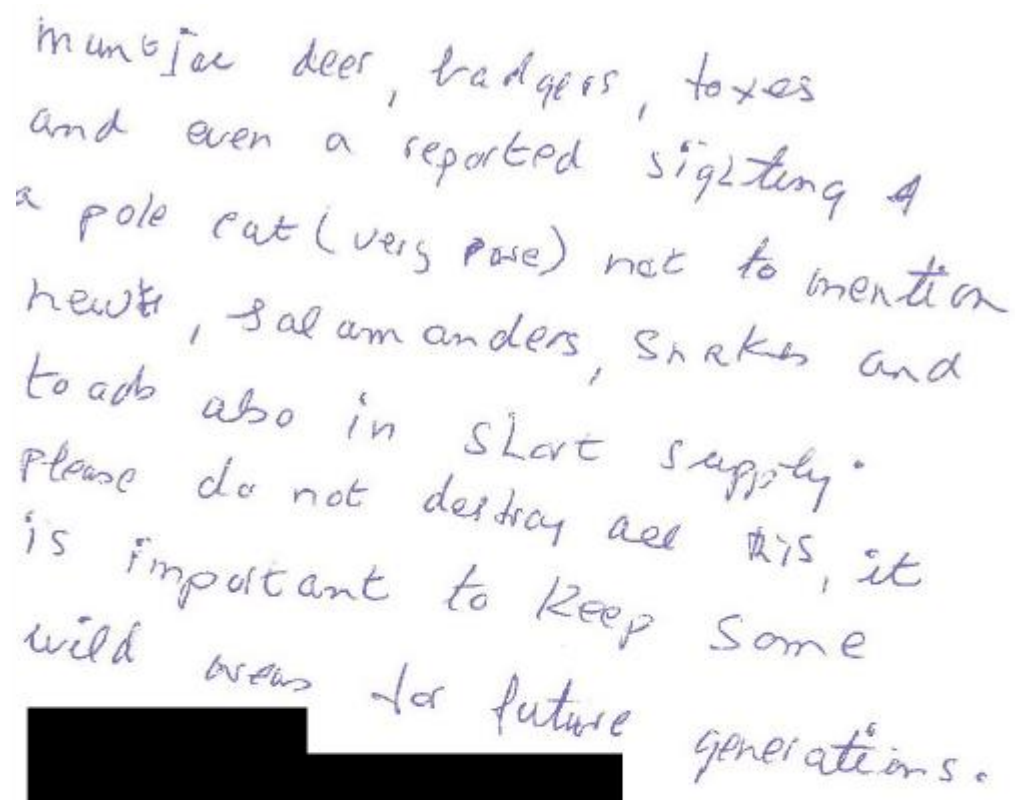 muntjac deer, badgers, foxes
and even a reported sighting of
a pole cat (very rare) not to mention
newts, salamanders, snakes and
toads also in short supply.
please do not destroy all this, it
is important to keep some
wild areas for future generations.